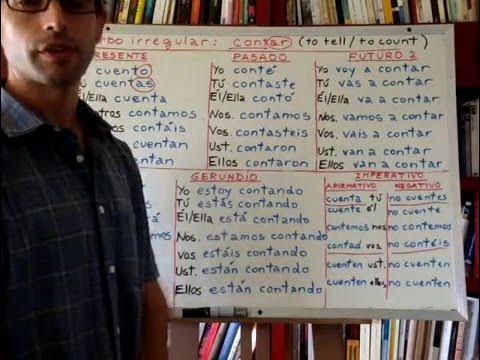 bo irregular: contar (to tell / to count)
RESENTE
cuento
cuentas
El/Ella cuenta
otros contamos
contáis
cuentan
entan
PASADO
Yo conté
Tú contaste
Él/Ella contó
Nos. contamos
Vos. contasteis
Ust. contaron
Ellos contaron
FUTURO 2
Yo voy a contar
Tú vas a contar
Él/Ella va a contar
Nos. vamos a contar
Vos. vais a contar
Ust. van a contar
Ellos van a contar
GERUNDIO
Yo estoy contando
Tú estás contando
Él/Ella está contando
Nos. estamos contando
Vos estáis contando
Ust. están contando
Ellos están contando
IMPERATIVO
AFIRMATIVO NEGATIVO
cuenta tú no cuentes
cuente él no cuente
contemos nos no contemos
contad vos. no contéis
cuenten ust. no cuenten
cuenten ellos no cuenten